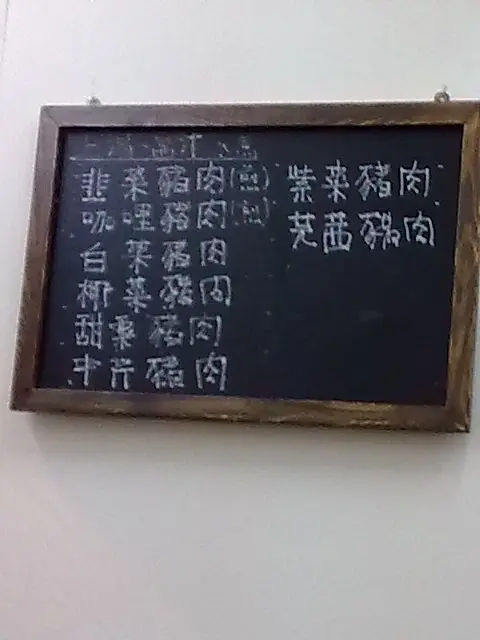 韭菜豬肉(煎)
咖哩豬肉(煎)
白菜豬肉
椰菜豬肉
甜粟豬肉
中芹豬肉
紫菜豬肉
芫茜豬肉